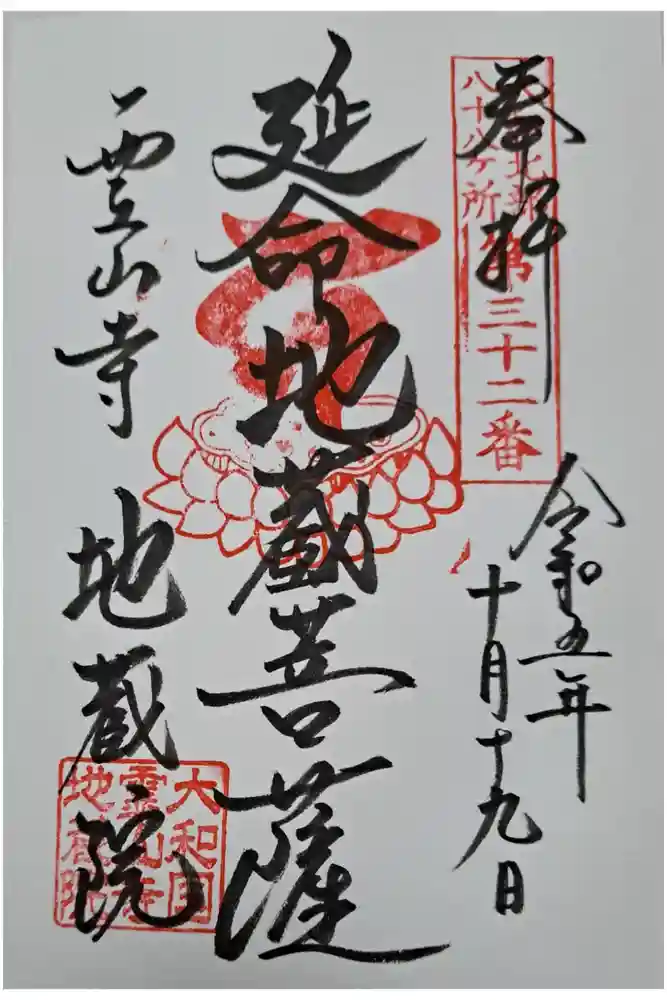 奉拝
八十八ケ所
第三十二番
令和五年
十月十九日
延命地蔵菩薩
霊山寺
地蔵院
大和国
霊山寺
地蔵院